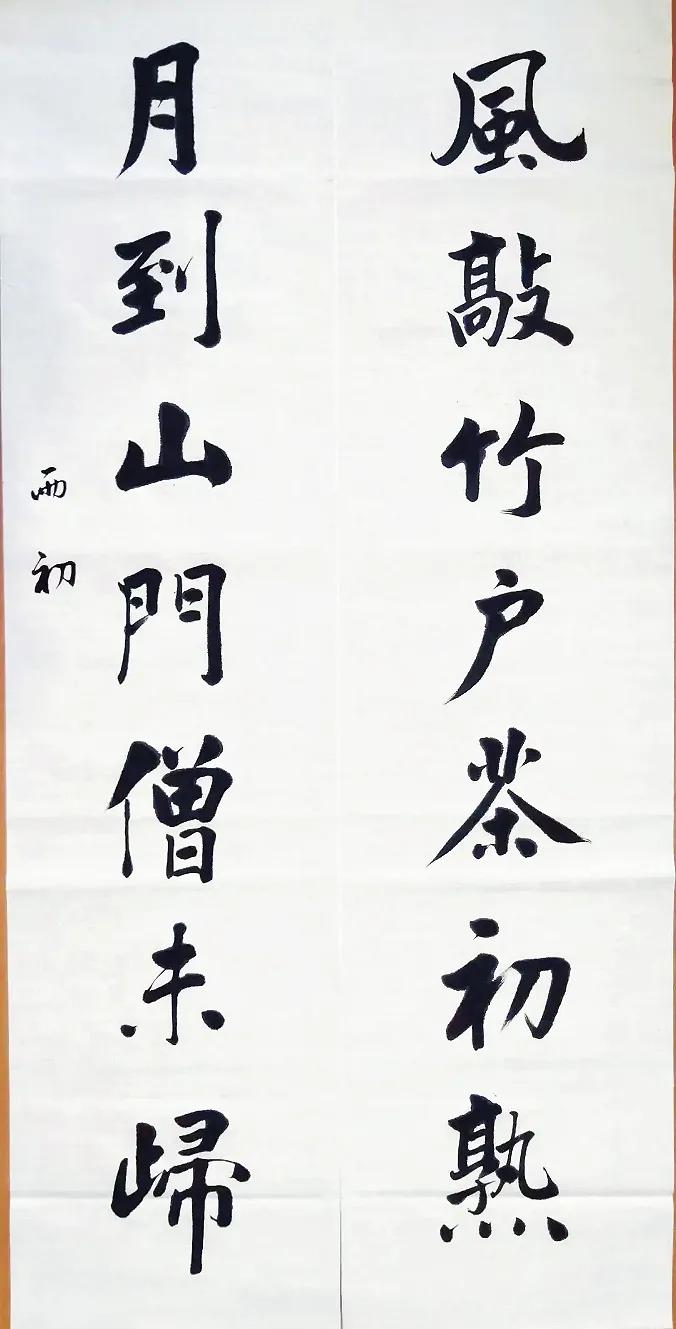 風敲竹户茶初熟
月到山門僧未歸
雨初